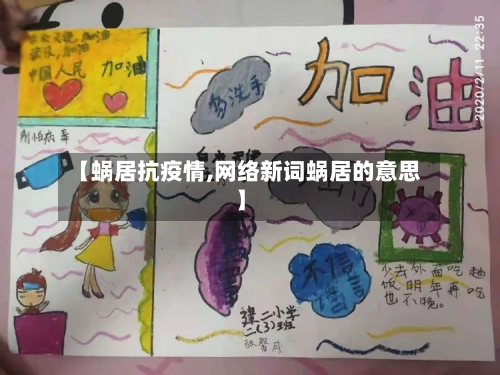 加油
中国人民
加油
别怕病毒
勤洗手
加油
【蜗居抗疫情,网络新词蜗居的意思
】
不信谣
少去外面吃
饭明年再吃
也不晚。
建二小学
二(3)班
张馨月
2020/2/11 22:35